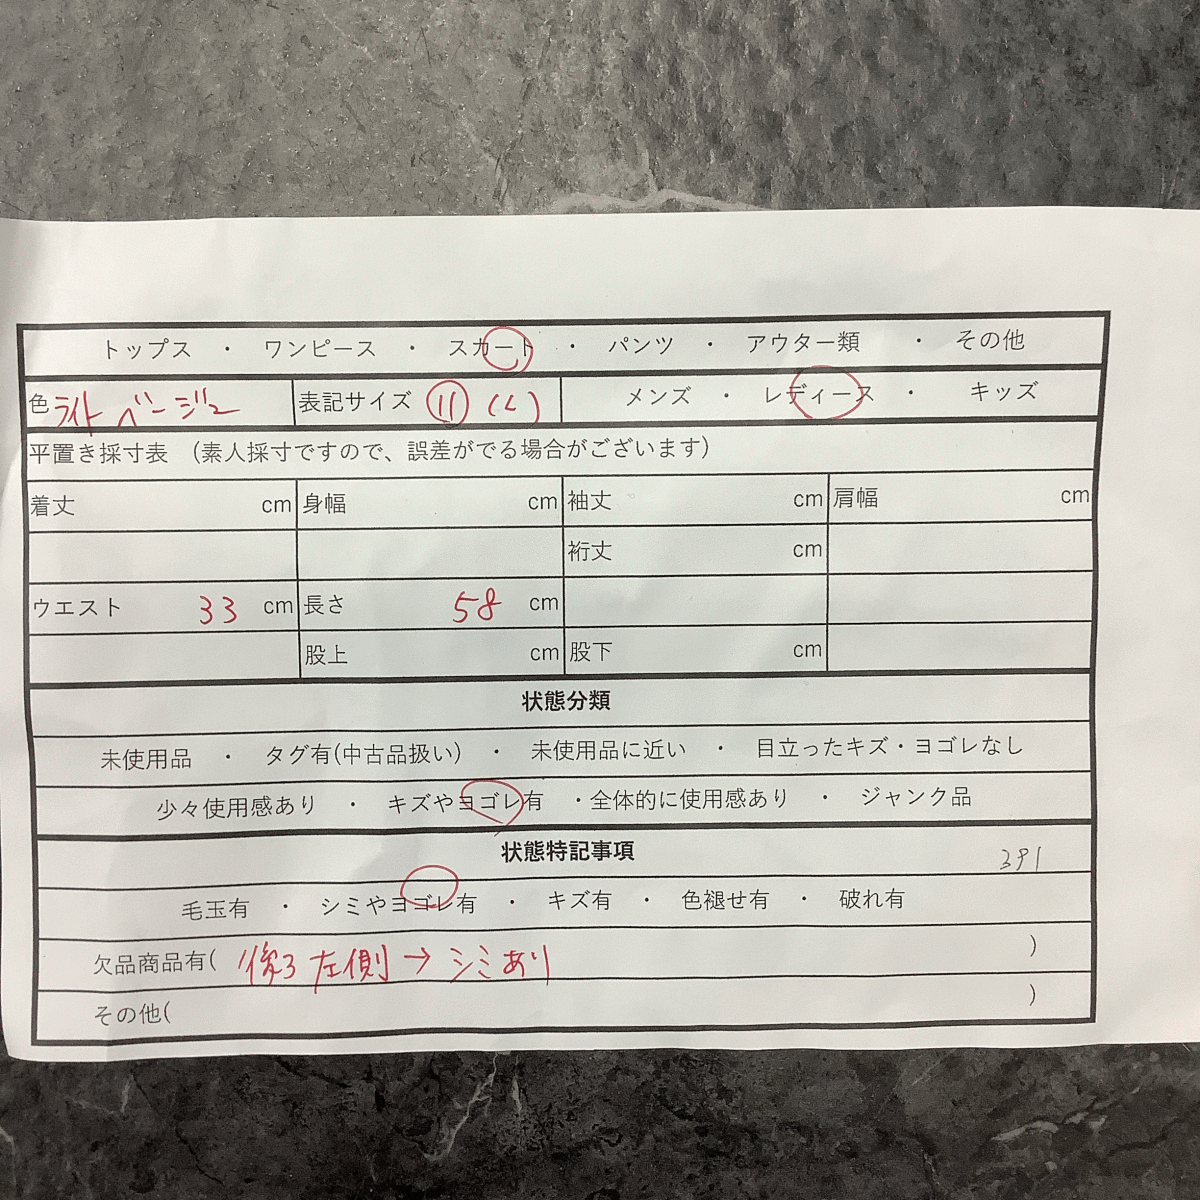 トップス ・ ワンピース ・ スカート ・ パンツ ・ アウター類 ・ その他
色 ライトベージュ 表記サイズ 11 (L) メンズ ・ レディース ・ キッズ
平置き採寸表 (素人採寸ですので、誤差がでる場合がございます)
着丈 cm 身幅 cm 袖丈 cm 肩幅 cm
裄丈 cm
ウエスト 33 cm 長さ 58 cm
股上 cm 股下 cm
状態分類
未使用品 ・ タグ有(中古品扱い) ・ 未使用品に近い ・ 目立ったキズ・ヨゴレなし
少々使用感あり ・ キズやヨゴレ有 ・全体的に使用感あり ・ ジャンク品
状態特記事項 391
毛玉有 ・ シミやヨゴレ有 ・ キズ有 ・ 色褪せ有 ・ 破れ有
欠品商品有( 後ろ左側→シミあり )
その他( )